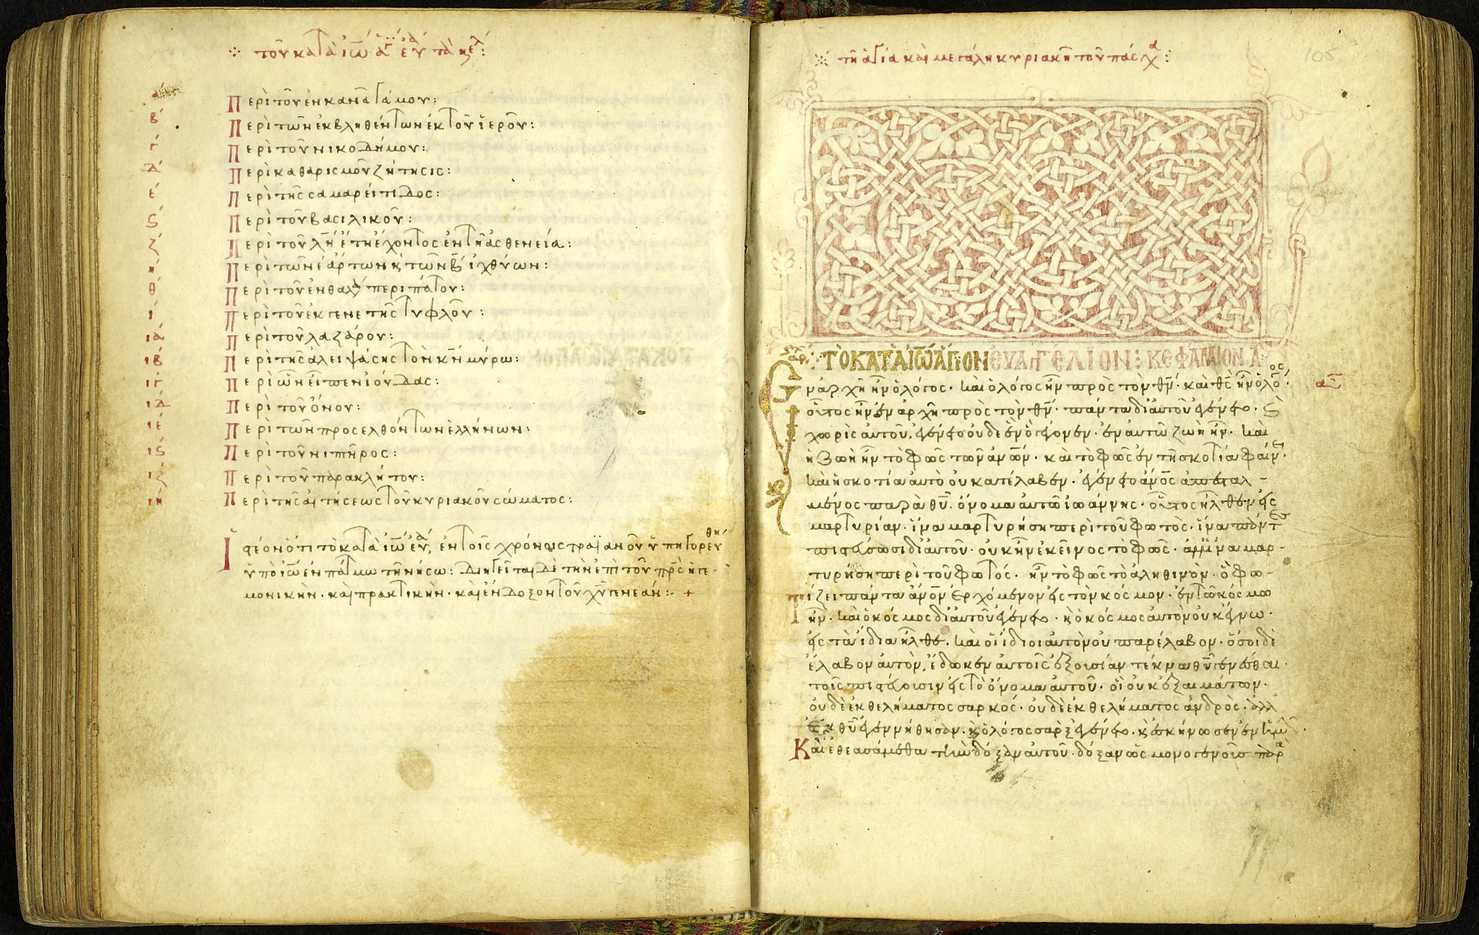 τοῦ κατὰ ἰω ἁγ ευα τὰ κεφλ:
α
β
γ
δ
ε
ς
ζ
η
θ
ι
ια
ιβ
ιγ
ιδ
ιε
ις
ιζ
ιη
Περὶ τοῦ ἐν κανᾶ γάμου:
Περὶ τῶν ἐκβληθέντων ἐκ τοῦ ἱεροῦ:
Περὶ τοῦ νικοδήμου:
Περὶ καθαρισμοῦ ζήτησις:
Περὶ τῆς σαμαρείτιδος:
Περὶ τοῦ βασιλικοῦ:
Περὶ τοῦ λη ἔτη ἔχοντος ἐν τῆ ἀσθενεία:
Περὶ τῶν ε ἄρτων κ τῶν β ἰχθύων:
Περὶ τοῦ ἐν θαλ περιπάτου:
Περὶ τοῦ ἐκ γενετῆς τυφλοῦ:
Περὶ τοῦ λαζάρου:
Περὶ τῆς ἀλειψάσης τὸν κν μύρω:
Περὶ ὧν εἶπεν ἰούδας:
Περὶ τοῦ ὄνου:
Περὶ τῶν προσελθόντων ἑλλήνων:
Περὶ τοῦ νιπτῆρος:
Περὶ τοῦ παρακλήτου:
Περὶ τῆς αἰτήσεως τοῦ κυριακοῦ σώματος:
Ἰστέον ὅτι τὸ κατὰ ἰω ευα, ἐν τοῖς χρόνοις τραϊανοῦ ὑπηγορεύθη
ὑπὸ ἰω ἐν πάτμω τῆ νήσω: διηγεῖται δὲ τὴν ἐπὶ τοῦ πρς ἡγε-
μονικὴν · καὶ πρακτικὴν · καὶ ἔνδοξον τοῦ χυ γενεάν:· +
τῆ ἁγία καὶ μεγάλη κυριακῆ τοῦ πάσχα:
105
ΤΟ ΚΑΤΑ ΙΩ ΑΓΙΟΝ ΕΥΑΓΓΕΛΙΟΝ: ΚΕΦΑΛΑΙΟΝ Α
Ἐν ἀρχῆ ἦν ὁ λόγος · καὶ ὁ λόγος ἦν πρὸς τὸν θν · καὶ θς ἦν ὁ λόγος ·
οὗτος ἦν ἐν ἀρχῆ πρὸς τὸν θν · πάντα δι αὐτοῦ ἐγένετο · κ
χωρὶς αὐτοῦ, ἐγένετο οὐδὲ ἓν ὃ γέγονεν · ἐν αὐτῶ ζωὴ ἦν · καὶ
ἡ ζωὴ ἦν τὸ φῶς τῶν ἀνων · καὶ τὸ φῶς ἐν τῆ σκοτία φαίν ·
καὶ ἡ σκοτία αὐτὸ οὐ κατέλαβεν · ἐγένετο ἀνος ἀπεσταλ-
μένος παρὰ θυ · ὄνομα αὐτῶ ἰωάννης · οὗτος ἦλθεν εἰς
μαρτυρίαν · ἵνα μαρτυρήση περὶ τοῦ φωτός · ἵνα πάντες
πιστεύσωσι δι αὐτοῦ · οὐκ ἦν ἐκεῖνος τὸ φῶς · ἀλλ ἵνα μαρ-
τυρήση περὶ τοῦ φωτός · ἦν τὸ φῶς τὸ ἀληθινὸν · ὃ φω-
τίζει πάντα ἀνον ἐρχόμενον εἰς τὸν κόσμον · ἐν τῶ κόσμω
ἦν · καὶ ὁ κόσμος δι αὐτοῦ ἐγένετο · κ ὁ κόσμος αὐτὸν οὐκ ἔγνω ·
εἰς τὰ ἴδια ἦλθε · καὶ οἱ ἴδιοι αὐτὸν οὐ παρέλαβον · ὅσοι δὲ
ἔλαβον αὐτὸν, ἔδωκεν αὐτοῖς ἐξουσίαν τέκνα θυ γενέσθαι ·
τοῖς πιστεύουσιν εἰς τὸ ὄνομα αὐτοῦ · οἳ οὐκ ἐξ αἱμάτων ·
οὐδὲ ἐκ θελήματος σαρκός · οὐδὲ ἐκ θελήματος ἀνδρὸς · ἀλλ
ἐκ θυ ἐγεννήθησαν · κ ὁ λόγος σὰρξ ἐγένετο · κ ἐσκήνωσεν ἐν ἡμῖν ·
Καὶ ἐθεασάμεθα τὴν δόξαν αὐτοῦ · δόξαν ὡς μονογενοῦς παρὰ